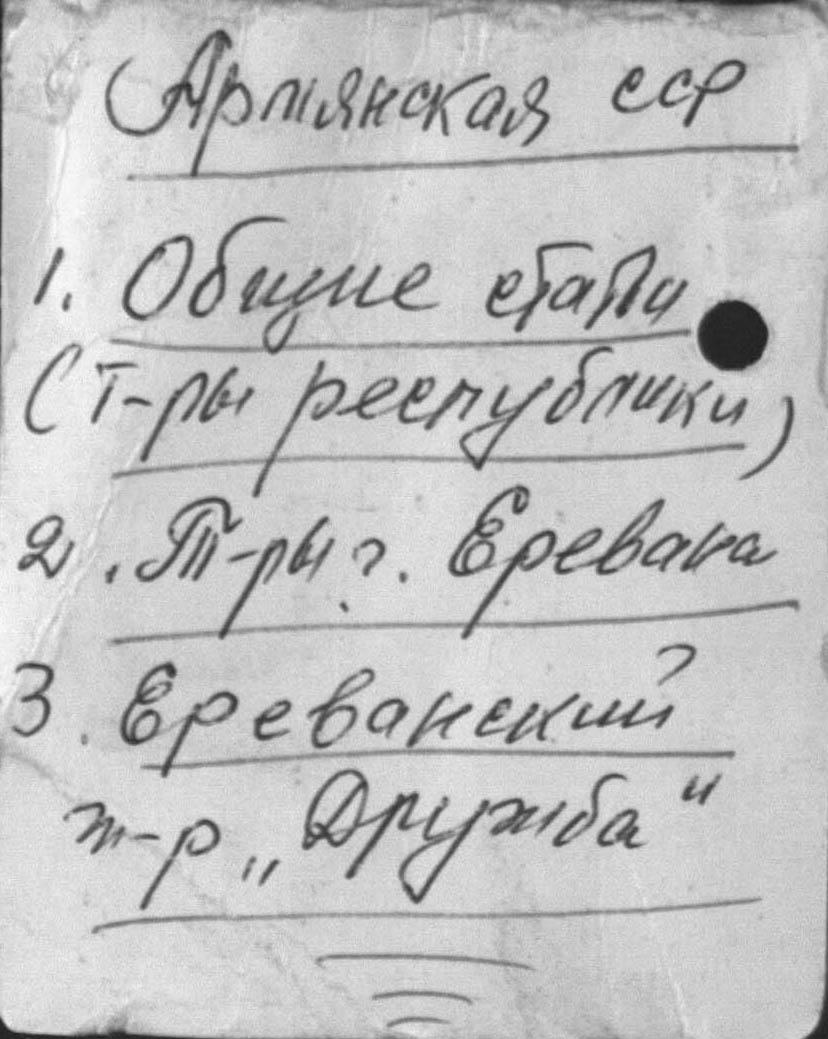 Армянская ССР
1. Общие статьи
(т-ры республики)
2. Т-ры г. Еревана
3. Ереванский
т-р „Дружба"